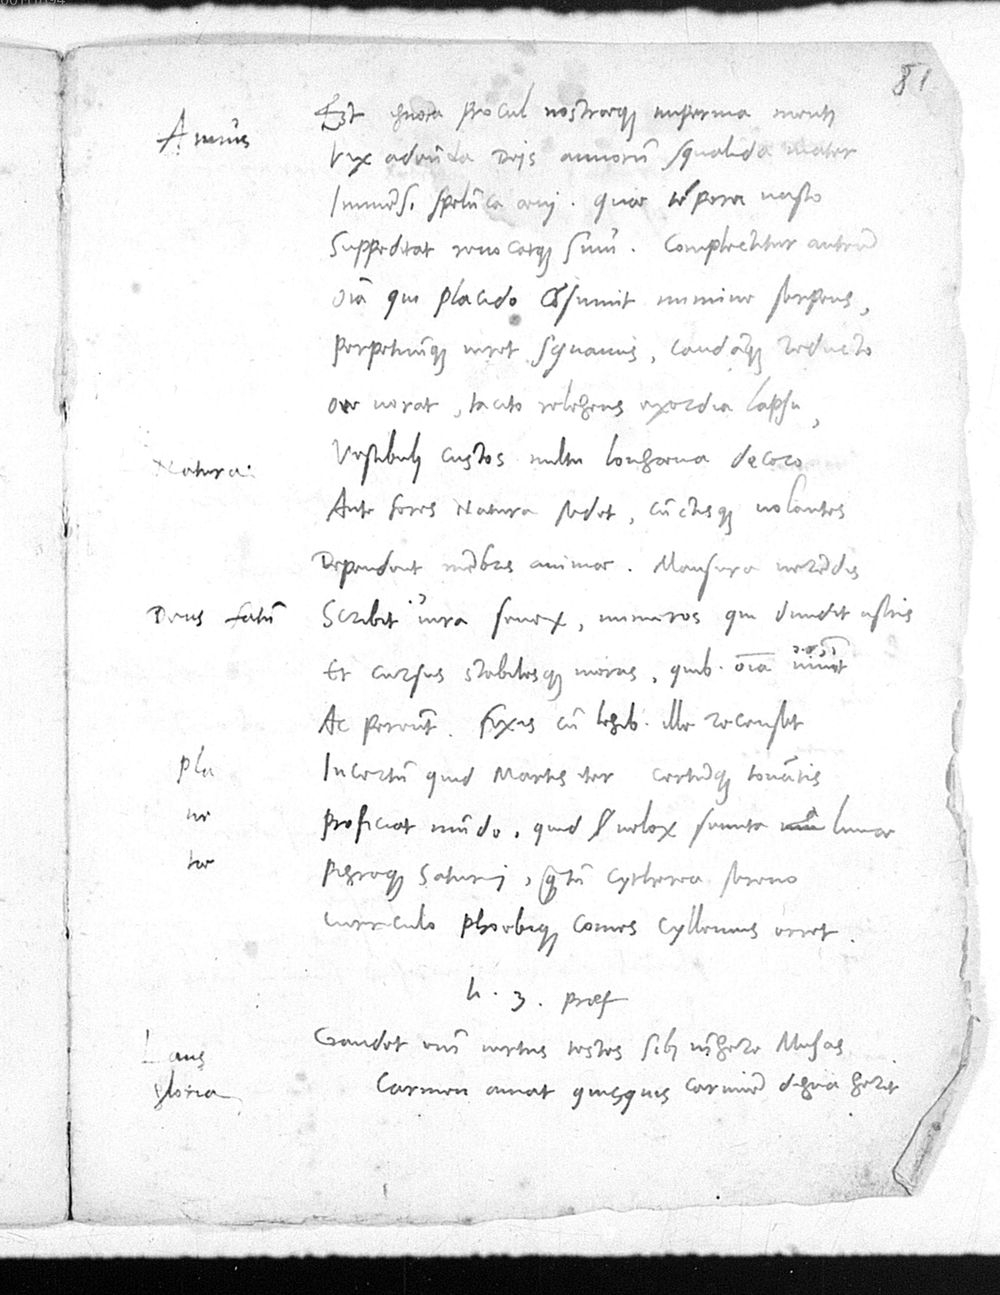 81
Annus
Est ignota procul nostraeq̨ impervia menti
Vix adeũda Deis annorũ squalida mater
Immẽsi spelũca aevi . quae tẽpora vasto
Suppeditat revocatq̨ sinu . Complectitur antrũ
Oĩa qui placido cõsumit numine serpens,
Perpetuũq̨ viret squamis, caudãq̨ reducto
ore vorat, tacito relegens exordia lapsu,
Vestibuli custos vultu longaeva decoro
Natura
Ante fores Natura sedet, cũctisq̨ volantes
Dependent mẽbris animae . Mansura verẽdus
Deus fatũ
Scribit iura senex, numeros qui dividit astris
Et cursus stabilesq̨ moras, quib. oĩa vivũt
Ac pereũt . fixis cũ legib. ille recenset
Pla
Incertũ quid Martis iter certũq̨ tonãtis
ne
Proficiat mũdo, quid velox semita lunae
tae
Pigraq̨ Saturni, q̃tũ Cytherea sereno
Curriculo Phoebiq̨ comes Cyllenius erret .
L . 3 . praef
Laus
Gaudet enĩ virtus testes sibi iũgere Musas
gloria
Carmen amat quisquis carmine digna gerit